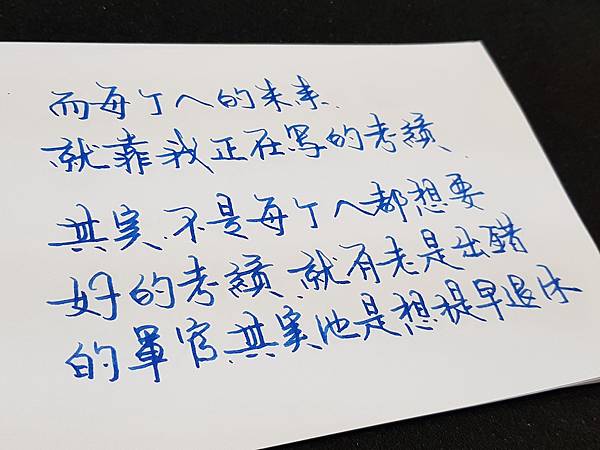 而每个人的未来
就靠我正在写的考績
其实.不是每个人都想要
好的考績.就有老是出錯
的軍官.其实他是想提早退休